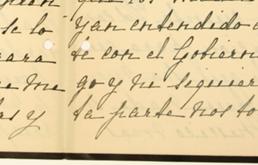 se lo yan entendido
ara te con el Gobiern
e me go y ni siquier
es y ta parte nos to